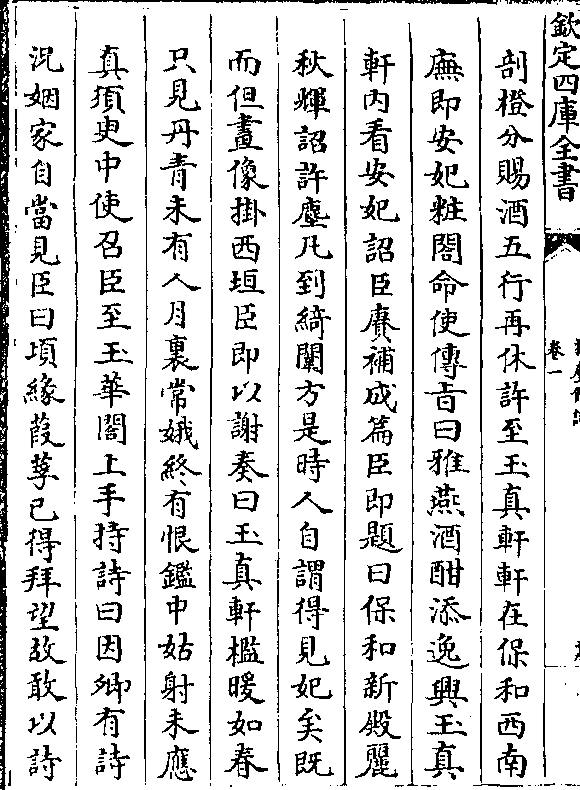 欽定四庫全書
卷一
剖橙分賜酒五行再休許至玉真軒軒在保和西南
廡即安妃粧閤命使傳旨曰雅燕酒酣添逸興玉真
軒内看安妃詔臣賡補成篇臣即題曰保和新殿麗
秋輝詔許塵凡到綺闈方是時人自謂得見妃矣既
而但畫像掛西垣臣即以謝奏曰玉真軒檻暖如春
只見丹青未有人月裏常娥終有恨鑑中姑射未應
真須臾中使召臣至玉華閣上手持詩曰因卿有詩
況姻家自當見臣曰頃緣葭莩已得拜望故敢以詩